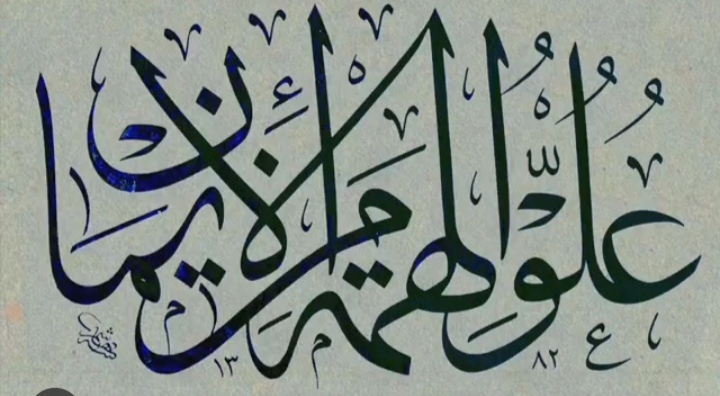 عُلُوُّ الهِمَّةِ مِنَ الإِيمَانِ
١٣ ٨٢